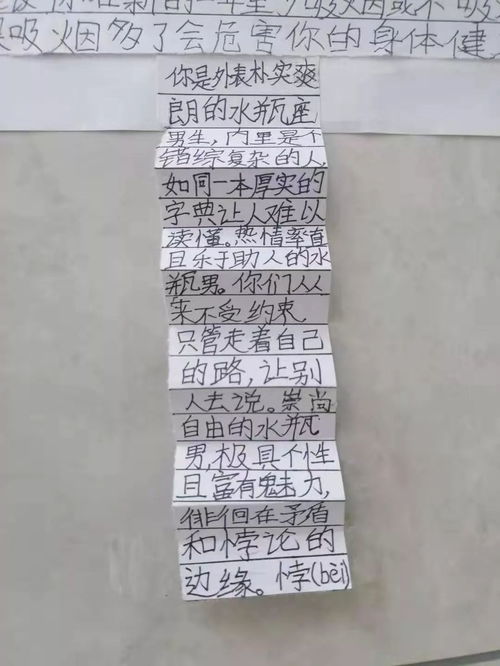 吸烟多了会危害你的身体健
你是外表朴实爽
朗的水瓶座
男生,内里是个
错综复杂的人,
如同一本厚实的
字典让人难以
读懂。热情率直
且乐于助人的水
瓶男。你们从
来不受约束
只管走着自己
的路,让别
人去说。崇尚
自由的水瓶
男,极具个性
且富有魅力,
徘徊在矛盾
和悖论的
边缘。悖(bèi)